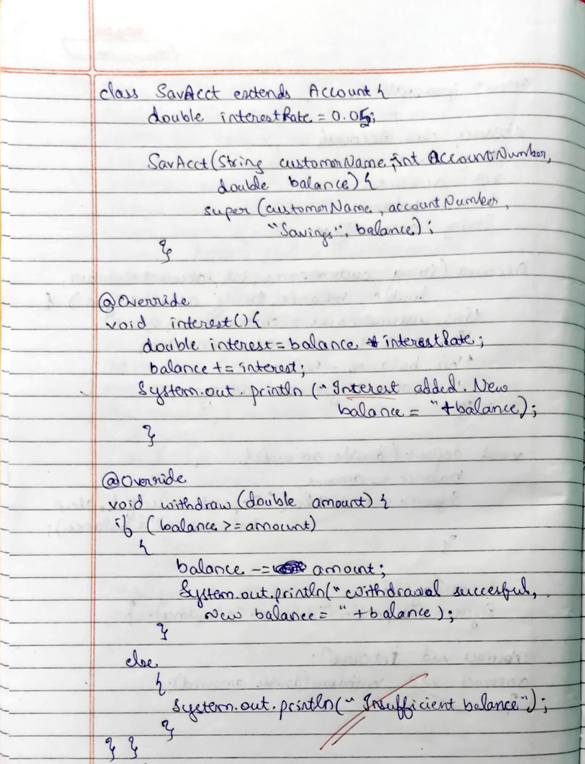 class SavAcct extends Account {
double interestRate = 0.05;
SavAcct(String customerName, int AccountNumber,
double balance) {
super (customerName, accountNumber,
"Savings", balance);
}
@Override
void interest() {
double interest = balance * interestRate;
balance += interest;
System.out.println ("Interest added. New
balance = "+balance);
}
@Override
void withdraw (double amount) {
if (balance >= amount)
{
balance -= amount;
System.out.println("withdrawal succesful,
New balance = " +balance);
}
else
{
System.out.println(" Insufficient balance");
}
} }